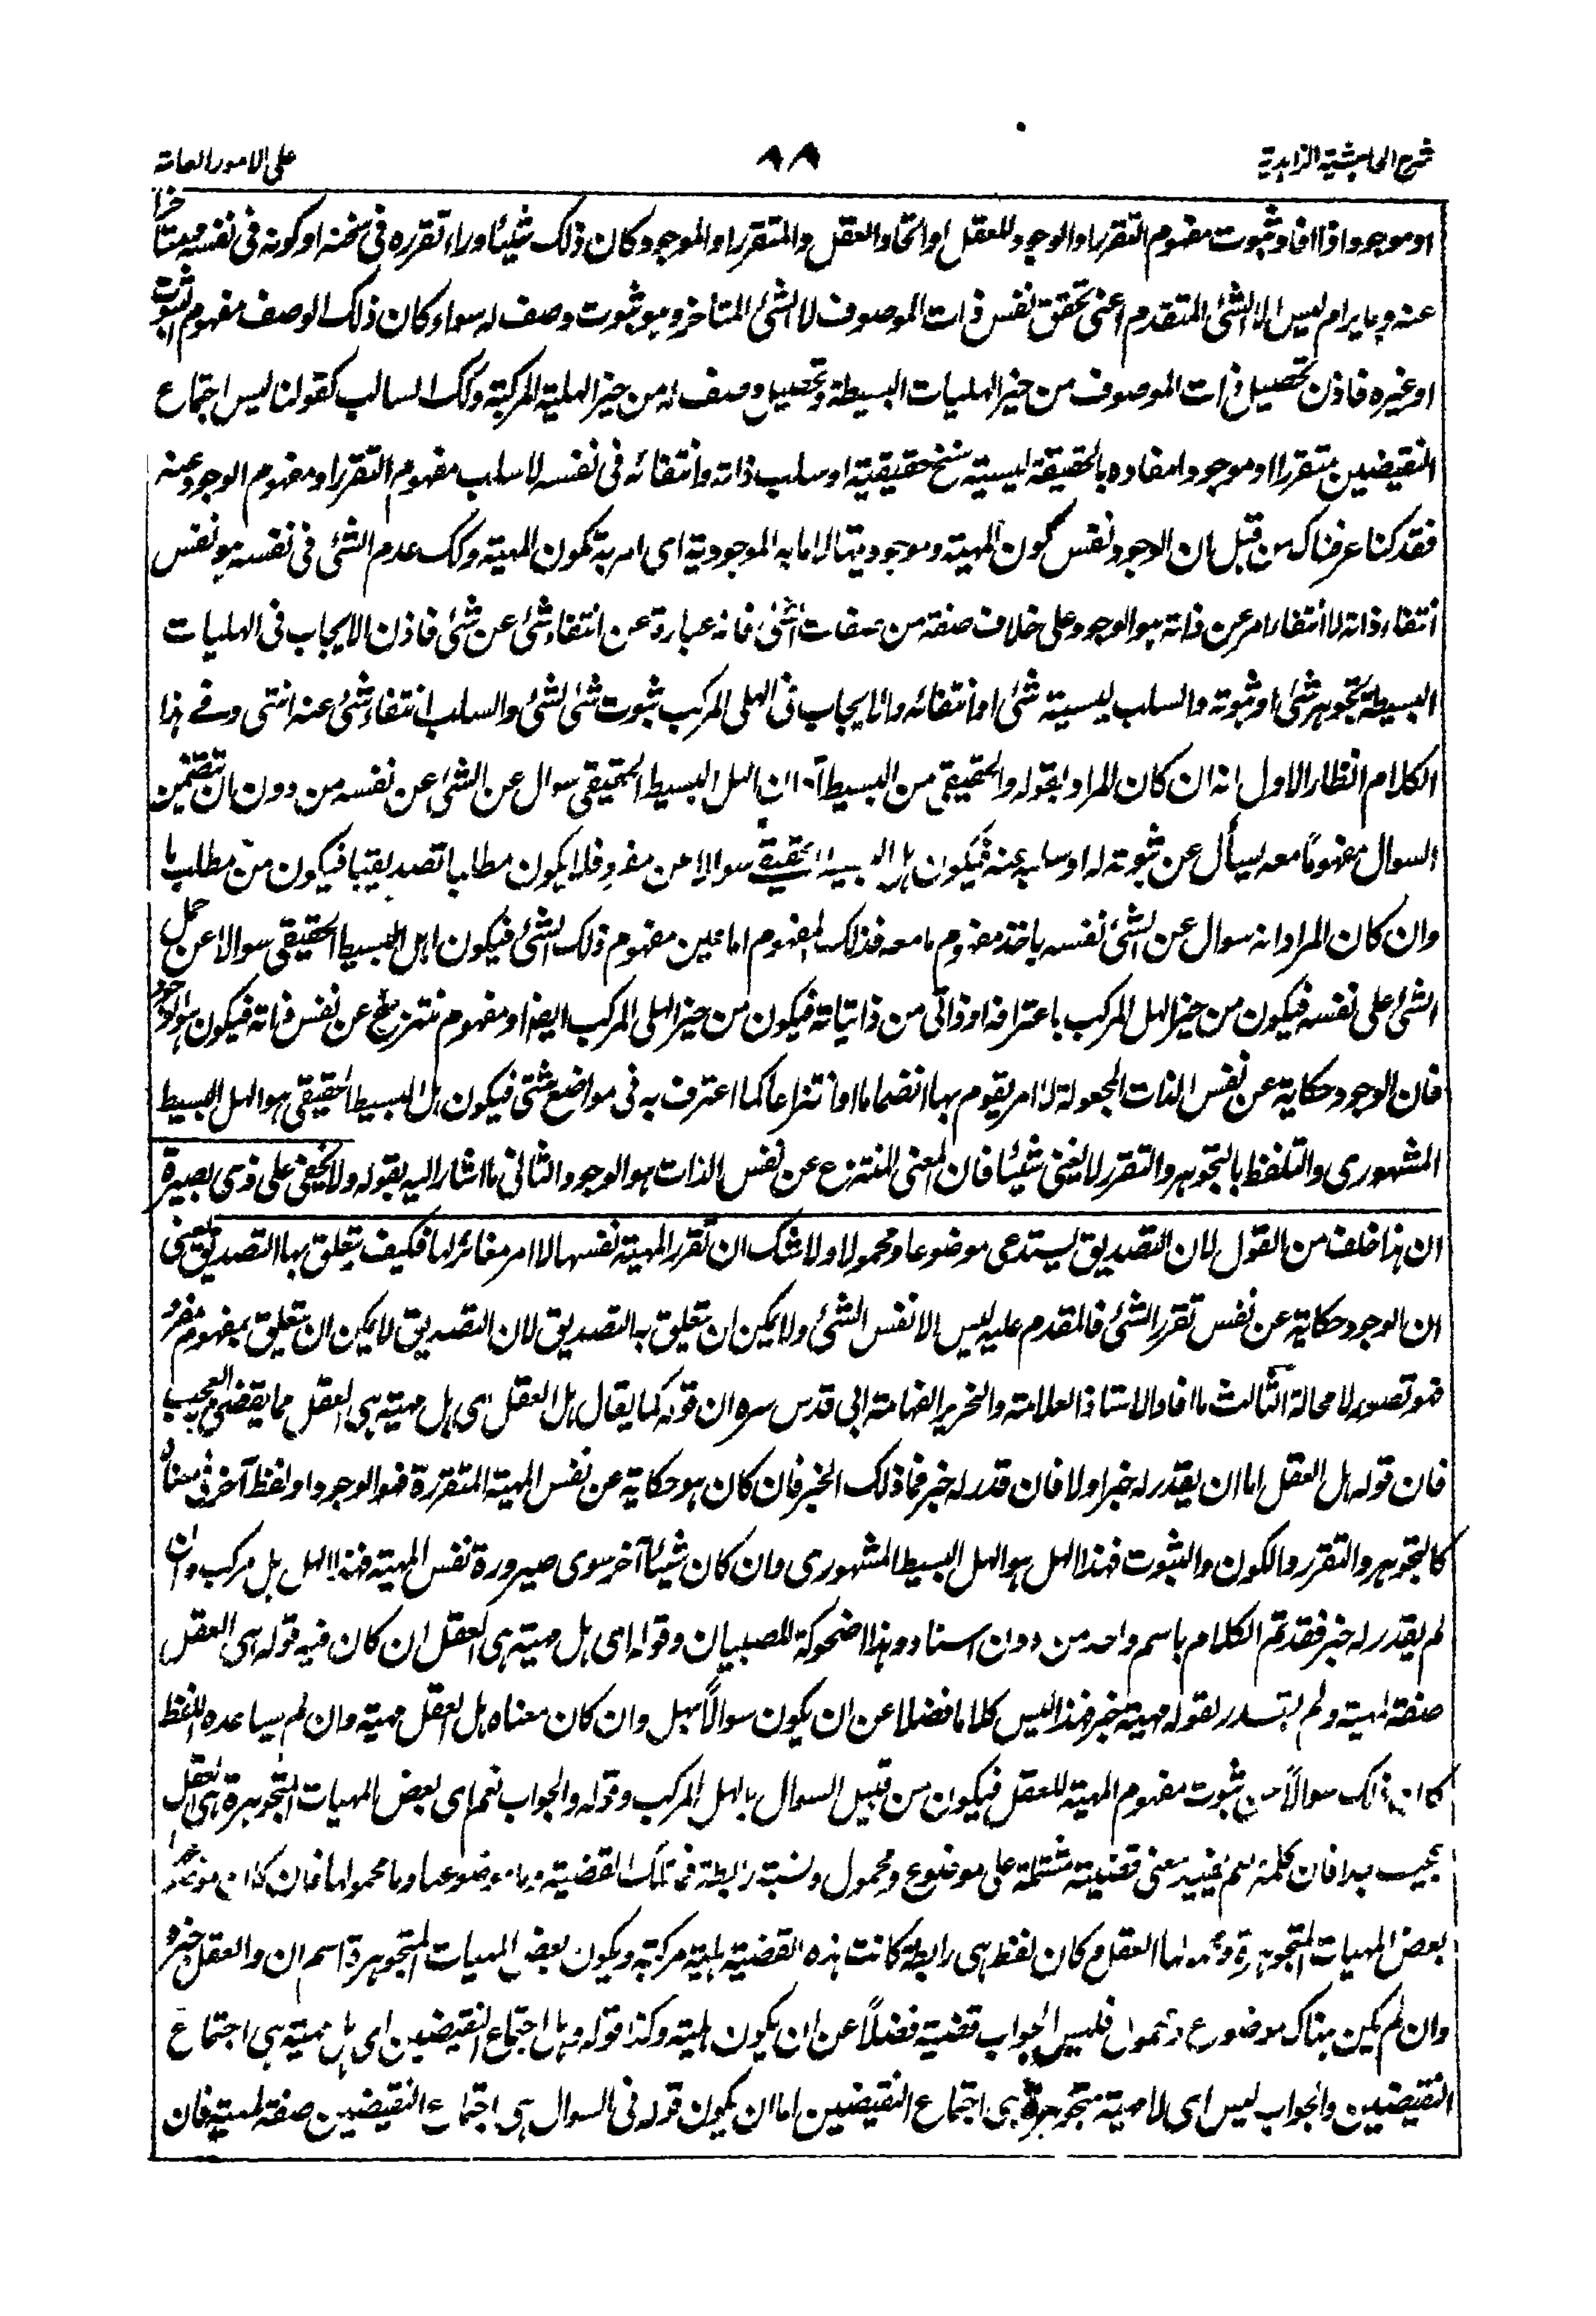 شرح الحاشية الزاهدية
٨٨
على الامور العامة
او موجود اذا افاد ثبوت مفهوم التقرر او الوجود للعقل او اتحاد العقل والمتقرر او الموجود كان ذلك شيئا وراء تقرره فى سنخه او كونه فى نفسه متأخرا
عنه وما يرام ليس الا الشئ المتقدم اعنى تحقق نفس ذات الموصوف لا الشئ المتأخر وهو ثبوت وصف له سواء كان ذلك الوصف مفهوم الثبوت
او غيره فاذن تحصيل ذات الموصوف من حيز الهليات البسيطة وتحصيل وصف له من حيز الهلية المركبة وكك السالب كقولنا ليس اجتماع
النقيضين متقررا او موجودا مفاده بالحقيقة ليسية سنخ حقيقية او سلب ذاته وانتفائه فى نفسه لا سلب مفهوم التقرر او مفهوم الوجود عنه
فقد كنا عرفناك من قبل بان الوجود نفس كون المهية وموجوديتها لا ما به الموجودية اى امر به تكون المهية وكك عدم الشئ فى نفسه هو نفس
انتفاء ذاته لا انتفاء امر عن ذاته هو الوجود على خلاف صفته من صفات الشئ فانه عبارة عن انتفاء شئ عن شئ فاذن الايجاب فى الهليات
البسيطة تجوهر شئ او ثبوته والسلب ليسية شئ او انتفائه والايجاب فى الهلى المركب ثبوت شئ لشئ والسلب انتفاء شئ عنه انتهى وفى هذا
الكلام انظار الاول انه ان كان المراد بقوله والحقيقى من البسيط آه ان الهل البسيط الحقيقى سوال عن الشئ عن نفسه من دون ان تتضمن
السوال مفهوما معه يسأل عن ثبوته له او سلبه عنه فيكون هل البسيط الحقيقى سوالا عن مفرد فلا يكون مطالبا تصديقيا فيكون من مطلب ما
وان كان المراد انه سوال عن الشئ نفسه باخذ مفهوم ما معه فذلك المفهوم اما عين مفهوم ذلك الشئ فيكون الهل البسيط الحقيقى سوالا عن حمل
الشئ على نفسه فيكون من حيز الهل المركب باعترافه او ذاتى من ذاتياته فيكون من حيز الهلى المركب ايضا او مفهوم منتزع عن نفس ذاته فيكون هو الوجود
فان الوجود حكاية عن نفس الذات المجعولة لا امر يقوم بها انضماما او انتزاعا كما اعترف به فى مواضع شتى فيكون هل البسيط الحقيقى هو الهل البسيط
المشهورى والتلفظ بالتجوهر والتقرر لا يغنى شيئا فان المعنى المنتزع عن نفس الذات هو الوجود الثانى ما اشار اليه بقوله ولا يخفى على ذى بصيرة
ان هذا خلف من القول لان التصديق يستدعى موضوعا ومحمولا ولا شك ان تقرر المهية نفسها لا امر مغائر لها فكيف يتعلق بها التصديق يعنى
ان الوجود حكاية عن نفس تقرر الشئ فالمقدم عليه ليس الا نفس الشئ ولا يمكن ان يتعلق به التصديق لان التصديق لا يمكن ان يتعلق بمفهوم مفرد
فهو تصور لا محالة الثالث ما افاد الاستاذ العلامة والنحرير الفهامة ابى قدس سره ان قوله كما يقال هل العقل اى هل مهية هى العقل مما يقضى العجيب
فان قوله هل العقل اما ان يقدر له خبر او لا فان قدر له خبر فما ذلك الخبر فان كان هو حكاية عن نفس المهية المتقررة فهو الوجود او لفظ آخر فى معناه
كالتجوهر والتقرر والكون والثبوت فهذا الهل هو الهل البسيط المشهورى وان كان شيئا آخر سوى صيرورة نفس المهية فهذا الهل هل مركب وان
لم يقدر له خبر فقد تم الكلام باسم واحد من دون اسناد وهذا اضحوكة للصبيان وقوله اى هل مهية هى العقل ان كان فيه قوله هى العقل
صفة لمهية ولم يقدر لقوله مهية خبر فهذا ليس كلاما فضلا عن ان يكون سوالا بهل وان كان معناه هل العقل مهية وان لم يساعده اللفظ
كان ذلك سوالا عن ثبوت مفهوم المهية للعقل فيكون من قبيل السوال بالهل المركب وقوله والجواب نعم اى بعض المهيات المتجوهرة هى العقل
عجيب جدا فان كلمة نعم يفيد معنى قضية مشتملة على موضوع ومحمول ونسبة رابطة فما تلك القضية وما موضوعها وما محمولها فان كان موضوعها
بعض المهيات المتجوهرة ومحمولها العقل وكان لفظ هى رابطة كانت هذه القضية هلية مركبة ويكون بعض المهيات المتجوهرة اسم ان والعقل خبره
وان لم يكن هناك موضوع ومحمول فليس الجواب قضية فضلا عن ان يكون هلية وكذا قوله وهل اجتماع النقيضين اى هل مهية هى اجتماع
النقيضين والجواب ليس اى لا مهية متجوهرة هى اجتماع النقيضين اما ان يكون قوله فى السوال هى اجتماع النقيضين صفة لمهية فان